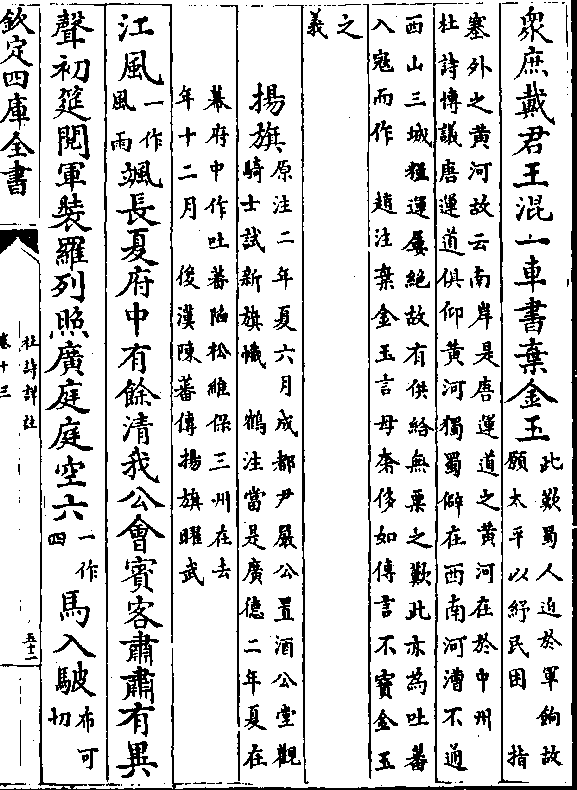 衆庶戴君王混一車書棄金玉
此歎蜀人迫於軍餉故
願太平以紓民困　指
塞外之黄河故云南岸是唐運道之黄河在於中州
杜詩愽議唐運道俱仰黄河獨蜀僻在西南河漕不通
西山三城糧運屢絶故有供給無粟之歎此亦為吐蕃
入寇而作　趙注棄金玉言毋奢侈如傳言不寶金玉
之
義
揚旗
原注二年夏六月成都尹嚴公置酒公堂觀
騎士試新旗幟　鶴注當是廣德二年夏在
幕府中作吐蕃陷松維保三州在去
年十二月　後漢陳蕃傳揚旗曜武
江風
一作
風雨
颯長夏府中有餘清我公會賓客肅肅有異
聲初筵閲軍裝羅列照廣庭庭空六
一作
四
馬入駊
布可
切
欽定四庫全書
杜詩詳註
卷十三
五十二